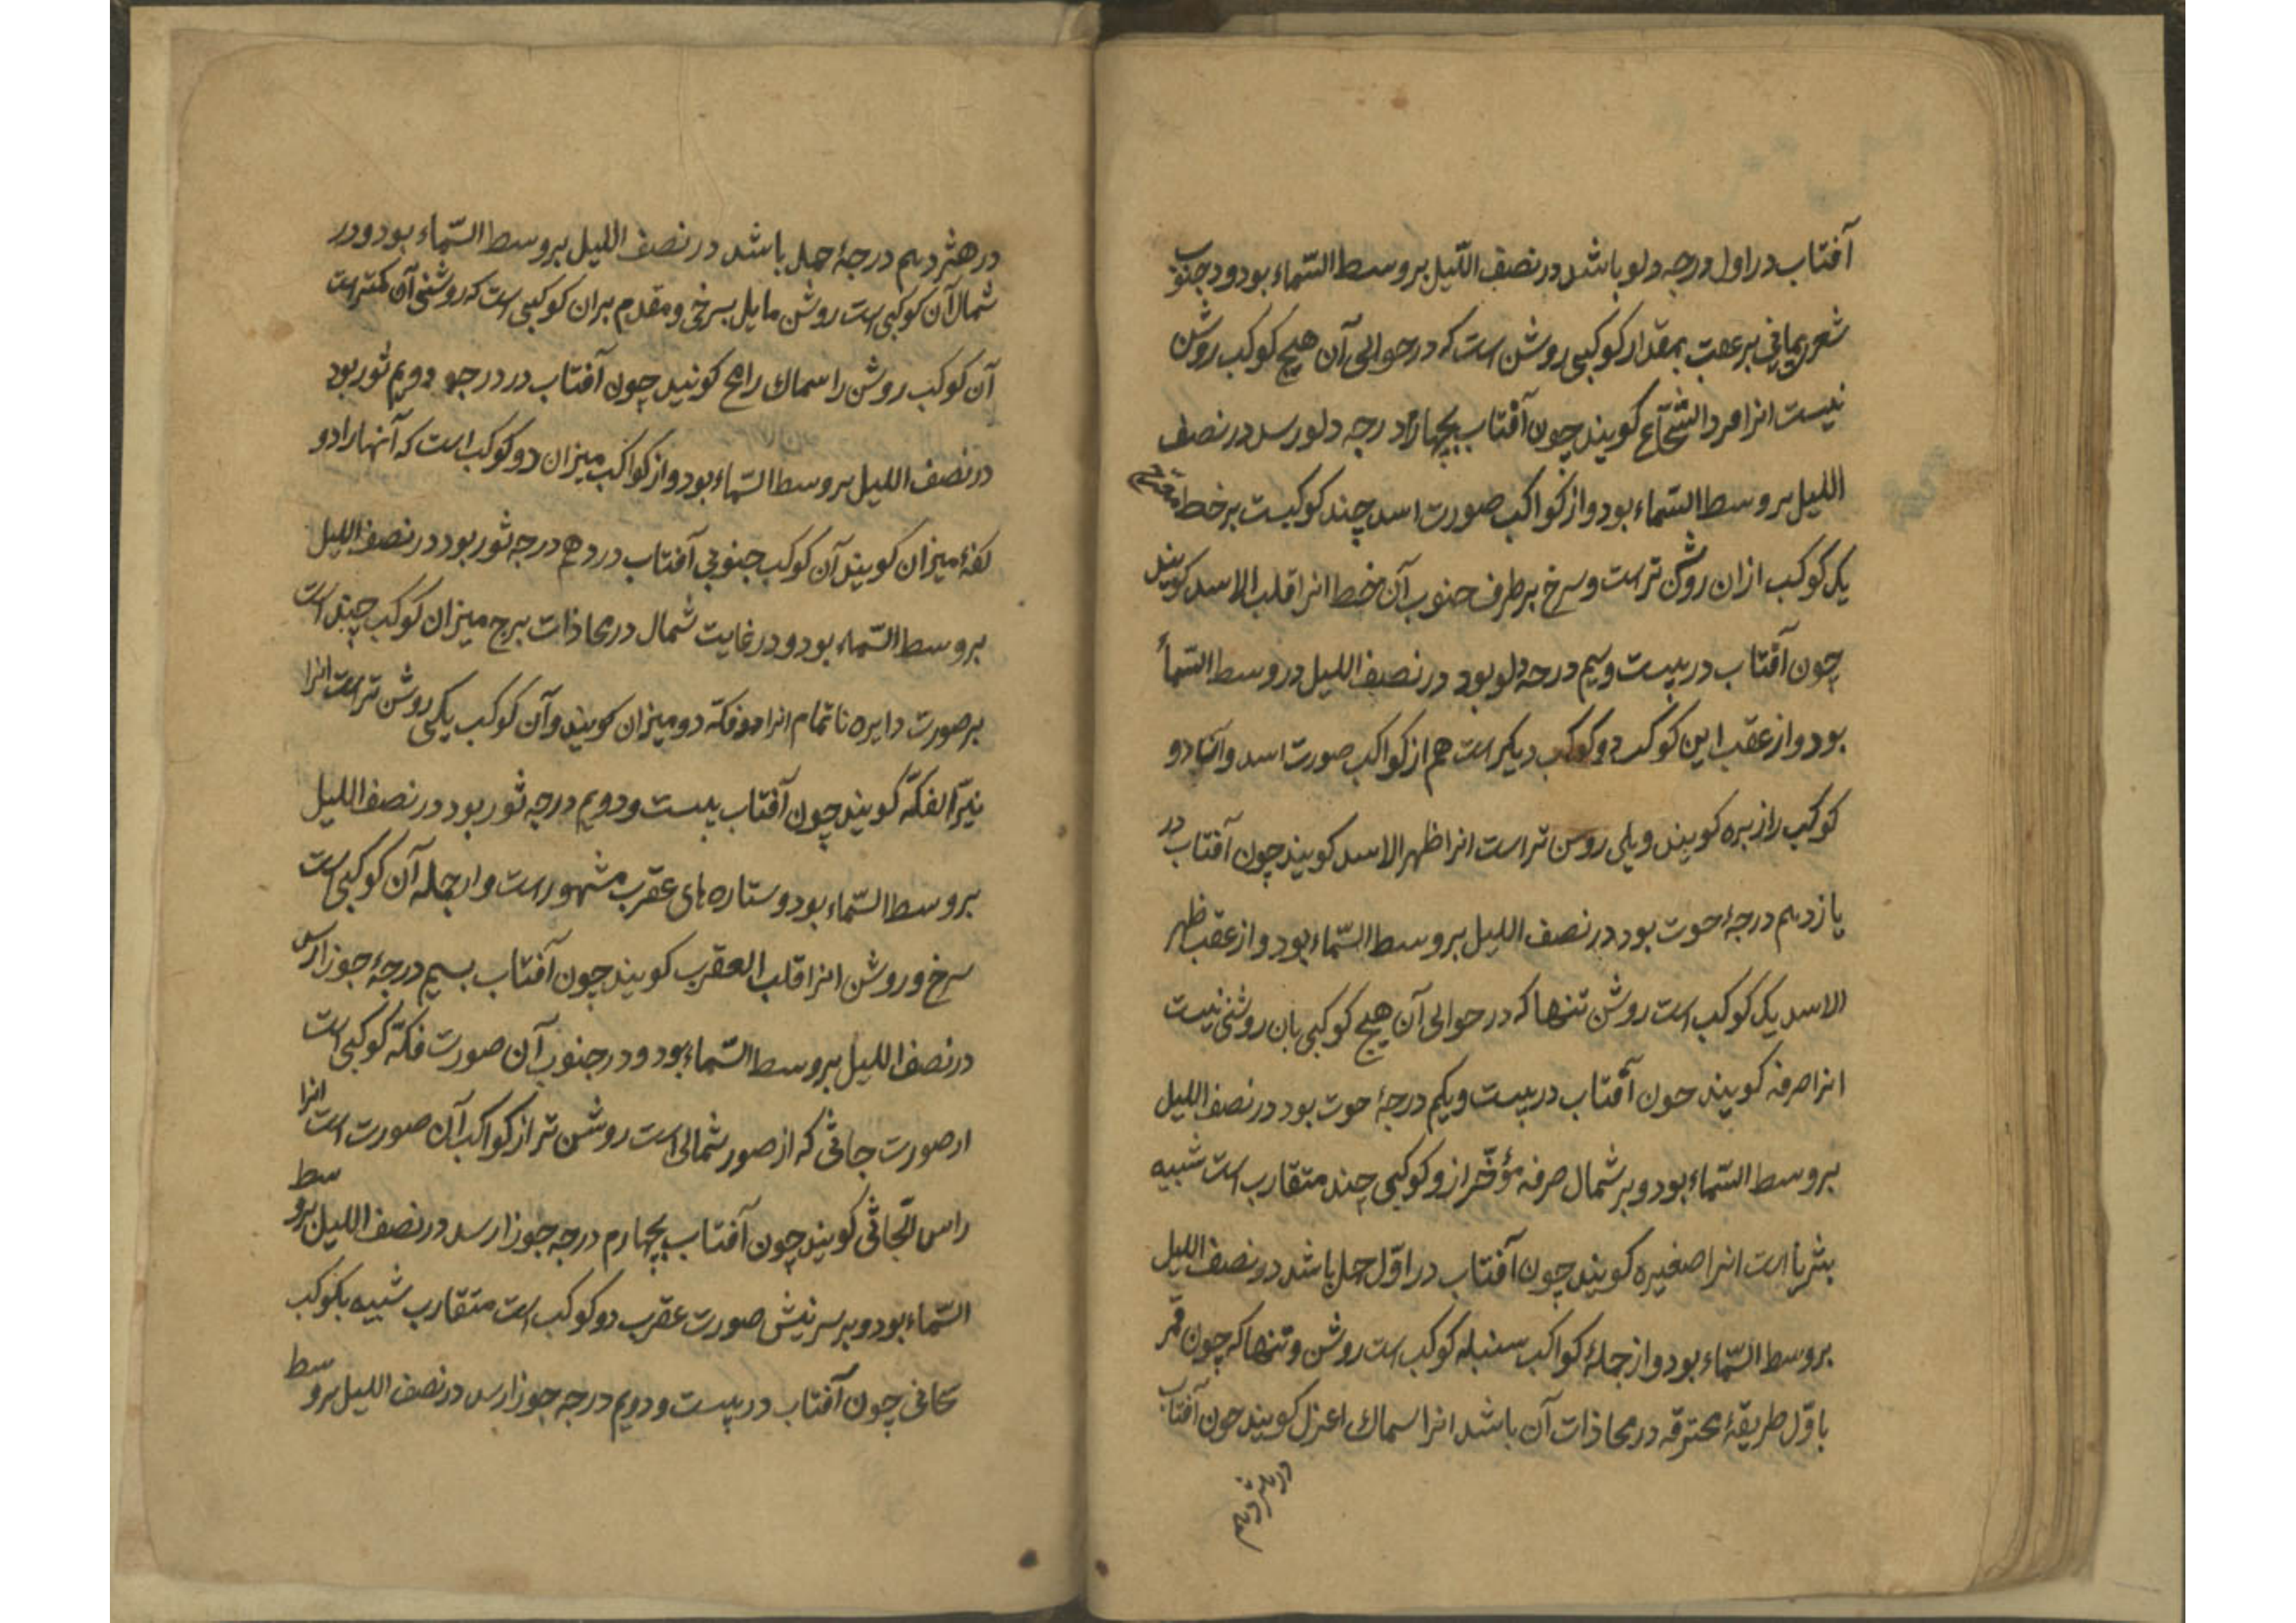 آفتاب در اول درجه دلو باشد در نصف اللّیل بر وسط السّماء بود و در جنوب
شعری یمانی بر عقب بمقدار کوکبی روشن است که در حوالی آن هیچ کوکب روشن
نیست انرا فرد الشجاع کویند چون آفتاب بچهارم درجه دلو رسد در نصف
اللیل بر وسط السّماء بود و از کواکب صورت اسد چند کوکبست بر خط
یک کوکب ازان روشن تر است و سرخ بر طرف جنوب آن خط انرا قلب الاسد کویند
چون آفتاب در بیست و سیم درجه دلو بود در نصف اللیل در وسط السّمأ
بود و از عقب این کوکب دو کوکب دیکر است هم از کواکب صورت اسد و آنها دو
کوکب را زبره کویند و یکی روشن تر است انرا ظهر الاسد کویند چون آفتاب در
یازدهم درجهٔ حوت بود در نصف اللیل بر وسط السّماء بود و از عقب ظهر
الاسد یک کوکب است روشن تنها که در حوالی آن هیچ کوکبی بان روشنی نیست
انرا صرفه کویند چون آفتاب در بیست و یکم درجهٔ حوت بود در نصف اللیل
بر وسط السّماء بود و بر شمال صرفه مؤخّر ازو کوکبی چند متقارب است شبیه
بثریا است انرا صغیره کویند چون آفتاب در اوّل حمل باشد در نصف اللیل
بر وسط السّماء بود و از جملهٔ کواکب سنبله کوکب است روشن و تنها که چون قمر
باوّل طریقهٔ محترقه در محاذات آن باشد انرا سماک اعزل کویند چون آفتاب
در هژدهم
در هژدهم درجهٔ حمل باشد در نصف اللیل بر وسط السّماء بود و در
شمال آن کوکبی است روشن مایل بسرخی و مقدم بران کوکبی است که روشنی آن کمتر است
آن کوکب روشن را سماک رامح کویند چون آفتاب در درجه دویم ثور بود
در نصف اللیل بر وسط السّماء بود و از کواکب میزان دو کوکب است که آنها را دو
کفهٔ میزان کویند آن کوکب جنوبی آفتاب در دهم درجه ثور بود در نصف اللیل
بر وسط السّماء بود و در غایت شمال در محاذات برج میزان کوکب چند است
بر صورت دایره ناتمام انرا فکّه دو میزان کویند و آن کوکب یکی روشن تر است انرا
نیّر الفکّه کویند چون آفتاب بیست و دویم درجه ثور بود در نصف اللیل
بر وسط السّماء بود و ستاره های عقرب مشهور است و از جمله آن کوکبی است
سرخ و روشن انرا قلب العقرب کویند چون آفتاب بسیم درجهٔ جوزا رسد
در نصف اللیل بر وسط السّماء بود و در جنوب آن صورت فکّه کوکبی است
از صورت جاثی که از صور شمالی است روشن تر از کواکب آن صورت است انرا
راس الجاثی کویند چون آفتاب بچهارم درجه جوزا رسد در نصف اللیل بر وسط
السّماء بود و بر سر نیش صورت عقرب دو کوکب است متقارب شبیه بکوکب
سحابی چون آفتاب در بیست و دویم درجه جوزا رسد در نصف اللیل بر وسط